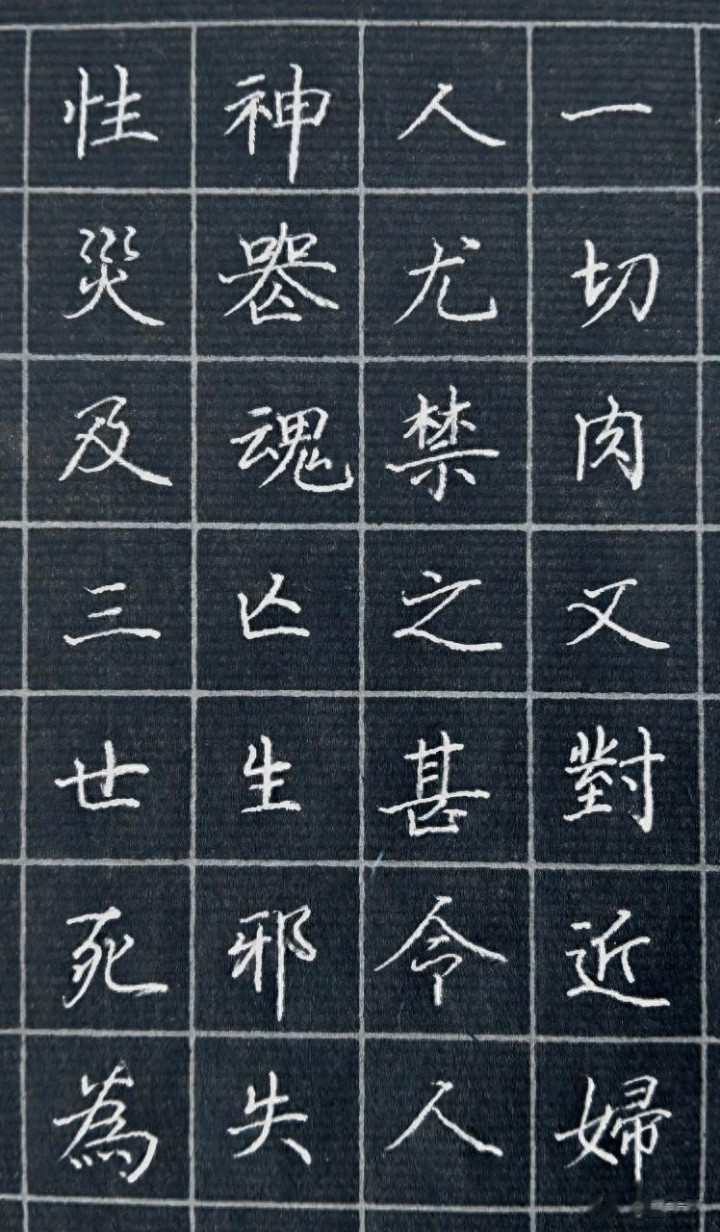 一切肉又對近婦
人尤禁之甚令人
神器魂亾生邪失
性災及三世死為